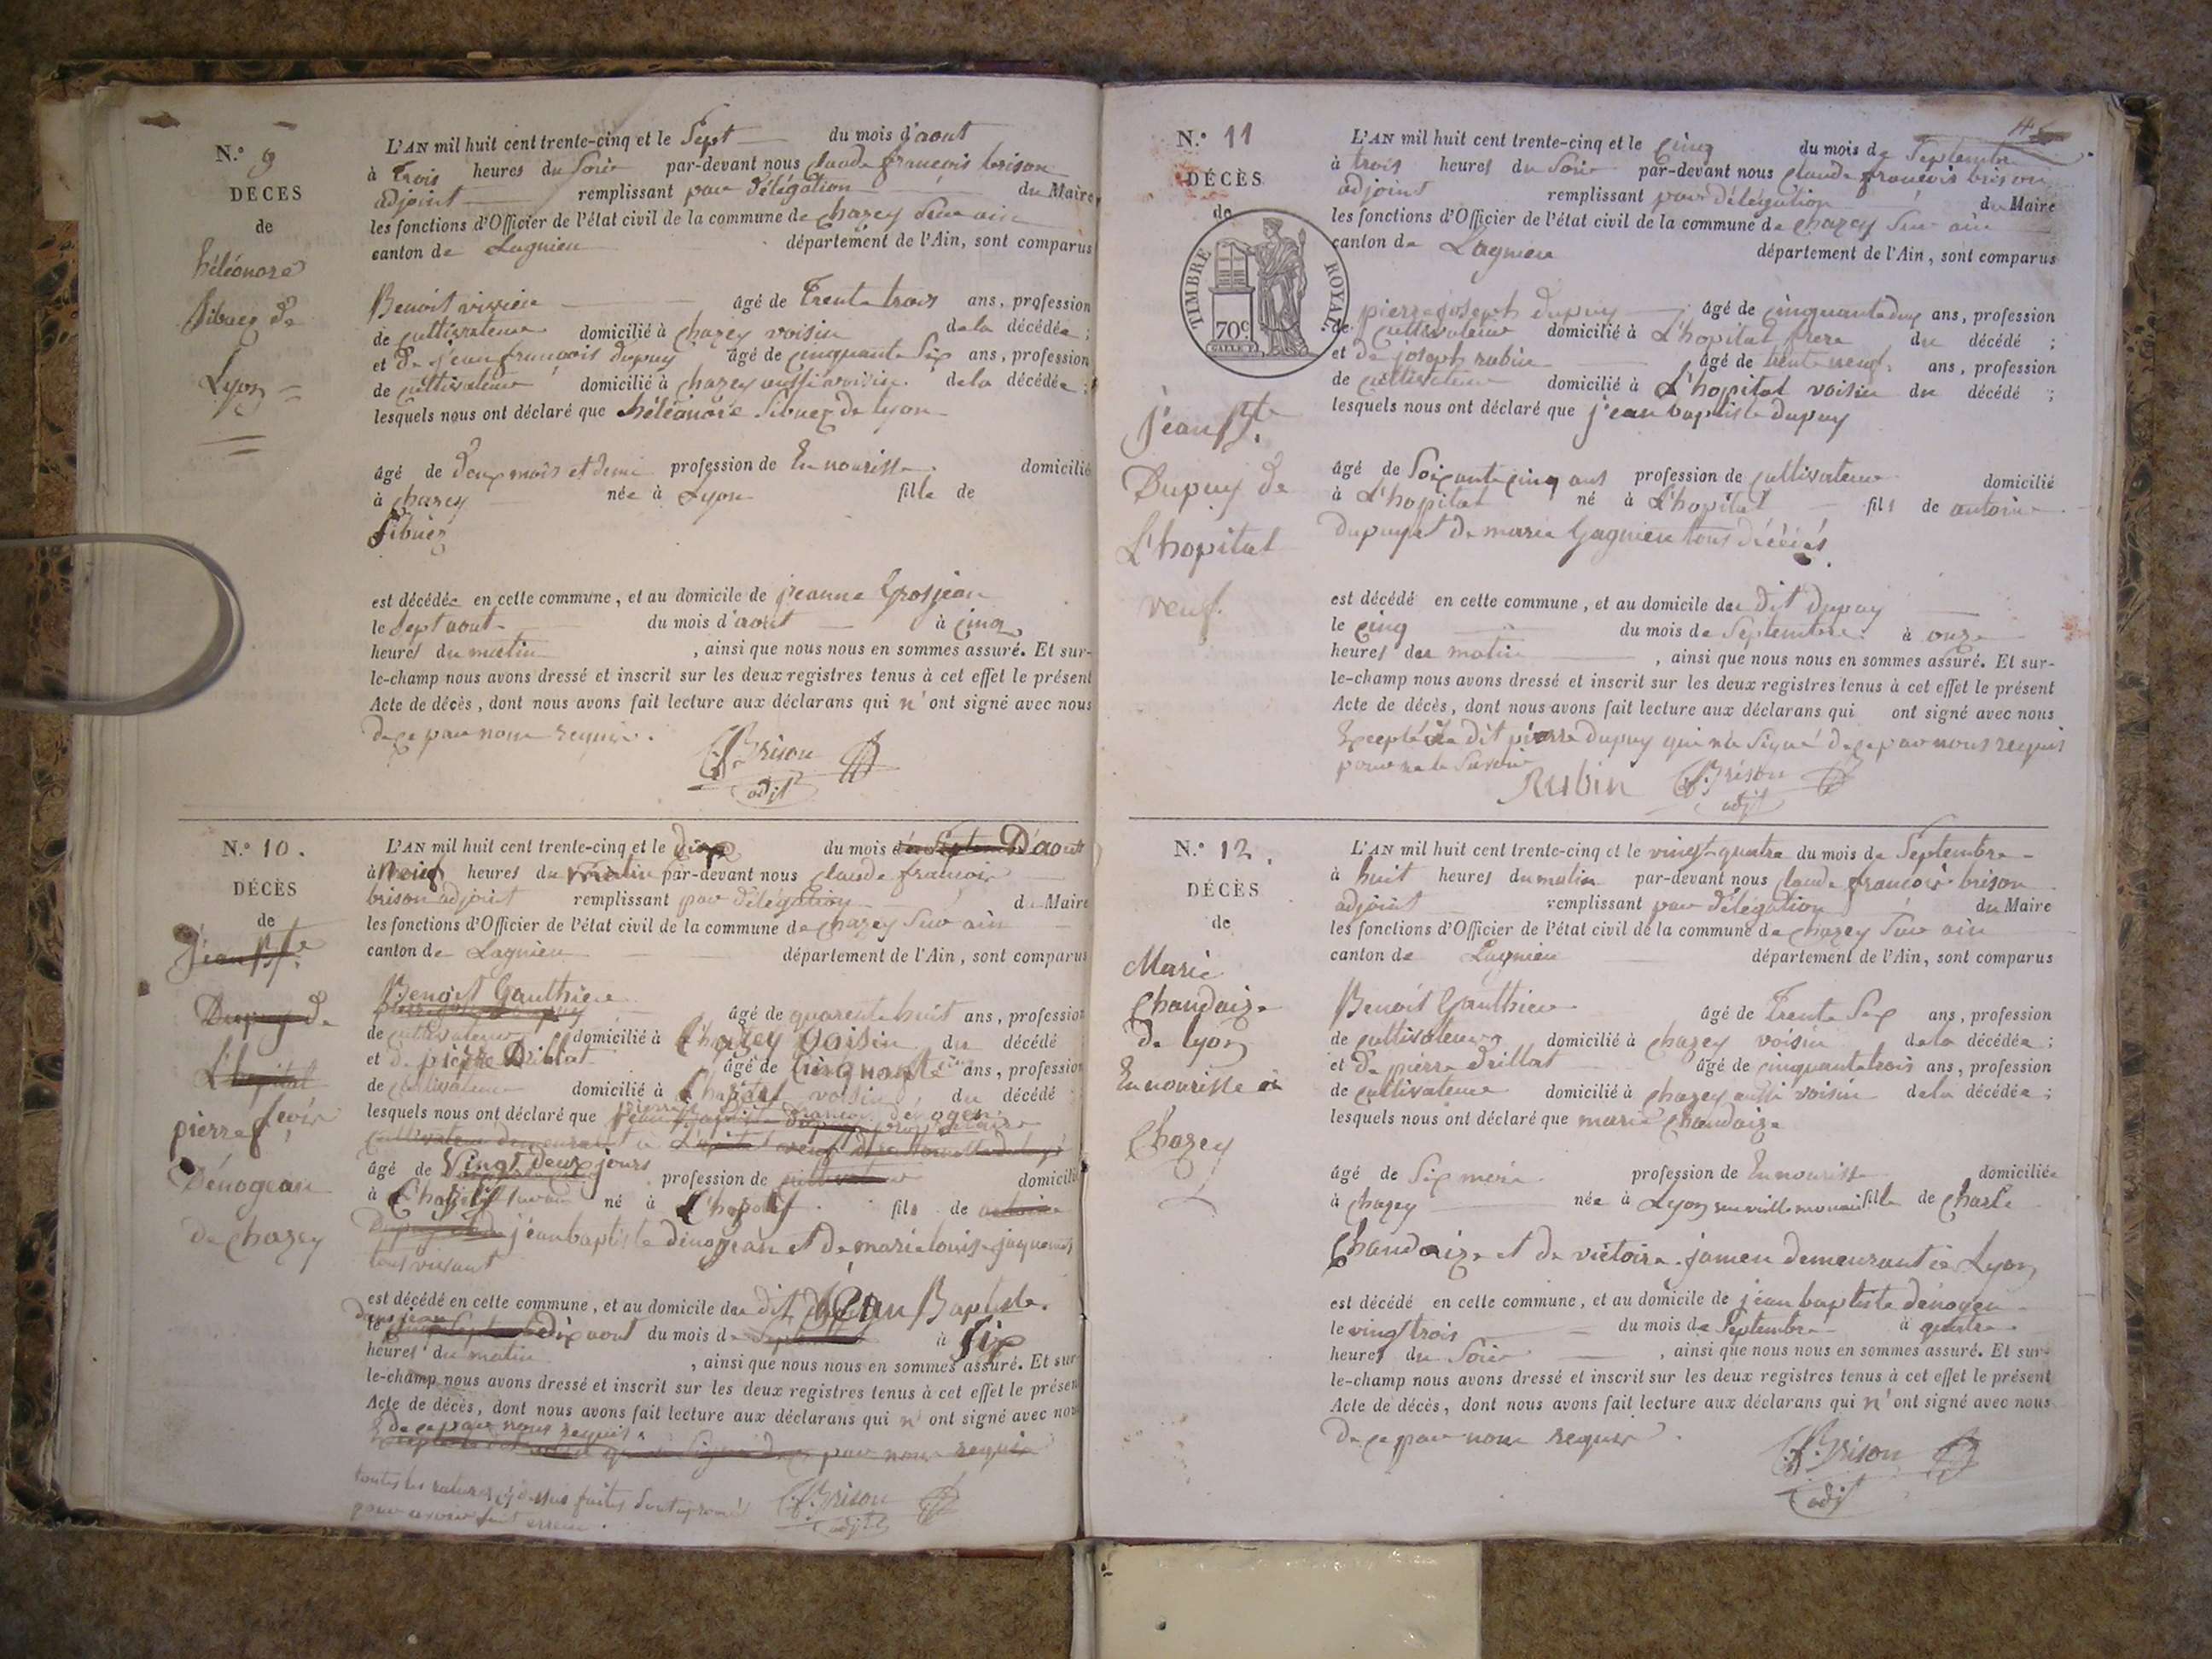 N.º 9
DÉCÈS
de
héléonore
Sibuez de
Lyon
L'AN mil huit cent trente-cinq et le Sept du mois d'aout
à trois heures du Soir par-devant nous claude françois brison
adjoint remplissant par délégation du Maire
les fonctions d'Officier de l'état civil de la commune de chazey Sur ain
canton de Lagnieu département de l'Ain, sont comparus
Benoit vivien âgé de trente trois ans, profession
de cultivateur domicilié à chazey voisin de la décédée ;
et de jean françois dupuy âgé de cinquante Six ans, profession
de cultivateur domicilié à chazey aussi voisin de la décédée ;
lesquels nous ont déclaré que héléonore Sibuez de lyon
âgé de deux mois et demi profession de En nourisse domicilié
à chazey née à Lyon fille de
Sibuez
est décédée en cette commune, et au domicile de jeanne Grosjean
le Sept aout du mois d'aout à cinq
heures du matin , ainsi que nous nous en sommes assuré. Et sur-
le-champ nous avons dressé et inscrit sur les deux registres tenus à cet effet le présent
Acte de décès, dont nous avons fait lecture aux déclarans qui n'ont signé avec nous
de ce par nous requis.
C.f. Brison
adjt
N.º 10.
DÉCÈS
de
Jean Bte
Dupuy de
L'hopital
pierre
Dénogean
de chazey
L'AN mil huit cent trente-cinq et le dix du mois de Septembre D'aout
à neuf heures du matin par-devant nous claude françois
brison adjoint remplissant par délégation du Maire
les fonctions d'Officier de l'état civil de la commune de chazey Sur ain
canton de Lagnieu département de l'Ain, sont comparus
Benoit Gauthier
âgé de quarente huit ans, profession
de cultivateur domicilié à Chazey voisin du décédé
et de pierre Drillat âgé de Cinquante ans, profession
de cultivateur domicilié à voisin du décédé
lesquels nous ont déclaré que
âgé de Vingt deux jours profession de cultivateur domicilié
à né à fils de antoine
jean baptiste dénogean et de marie louise
tous vivant
est décédé en cette commune, et au domicile du dit Jean Baptiste.
le dix aout du mois de Septembre à Six
heures du matin , ainsi que nous nous en sommes assuré. Et sur
le-champ nous avons dressé et inscrit sur les deux registres tenus à cet effet le présen
Acte de décès, dont nous avons fait lecture aux déclarans qui n'ont signé avec nou
de ce par nous requis.
par nous requis
toutes les ratures ci dessus faites Sont
pour avoir fait erreur.
C.f. Brison
adjt
N.º 11
DÉCÈS
de
TIMBRE ROYAL
70c
jean Bte
Dupuy de
L'hopital
veuf.
L'AN mil huit cent trente-cinq et le cinq du mois de Septembre
à trois heures du Soir par-devant nous claude françois brison
adjoint remplissant par délégation du Maire
les fonctions d'Officier de l'état civil de la commune de chazey Sur ain
canton de Lagnieu département de l'Ain, sont comparus
pierre joseph dupuy âgé de cinquante deux ans, profession
de cultivateur domicilié à L'hopital frere du décédé ;
et de joseph rubin âgé de trente neuf ans, profession
de cultivateur domicilié à L'hopital voisin du décédé ;
lesquels nous ont déclaré que jean baptiste dupuy
âgé de Soixante cinq ans profession de cultivateur domicilié
à L'hopital né à L'hopital fils de antoine
dupuy et de marie Gagnieu tous décédés
est décédé en cette commune, et au domicile du dit dupuy
le cinq du mois de Septembre à onze
heures du matin , ainsi que nous nous en sommes assuré. Et sur-
le-champ nous avons dressé et inscrit sur les deux registres tenus à cet effet le présent
Acte de décès, dont nous avons fait lecture aux déclarans qui ont signé avec nous
Excepté le dit pierre dupuy qui n'a Signé de ce par nous requis
pour ne le Savoir
Rubin C.f. Brison
adjt
N.º 12.
DÉCÈS
de
Marie
Chandaize
de lyon
En nourisse à
Chazey
L'AN mil huit cent trente-cinq et le vingt quatre du mois de Septembre
à huit heures du matin par-devant nous claude françois brison
adjoint remplissant par délégation du Maire
les fonctions d'Officier de l'état civil de la commune de chazey Sur ain
canton de Lagnieu département de l'Ain, sont comparus
Benoit Gauthier âgé de Trente Six ans, profession
de cultivateur domicilié à chazey voisin de la décédée ;
et de pierre drillat âgé de cinquante trois ans, profession
de cultivateur domicilié à chazey aussi voisin de la décédée ;
lesquels nous ont déclaré que marie chandaize
âgé de Six mois profession de En nourisse domiciliée
à chazey née à Lyon rue vieille monnaie fille de Charle
Chandaize et de victoire jamen demeurant à Lyon
est décédé en cette commune, et au domicile de jean baptiste dénogen
le vingt trois du mois de Septembre à quatre
heures du Soir , ainsi que nous nous en sommes assuré. Et sur-
le-champ nous avons dressé et inscrit sur les deux registres tenus à cet effet le présent
Acte de décès, dont nous avons fait lecture aux déclarans qui n'ont signé avec nous
de ce par nous requis.
C.f. Brison
adjt